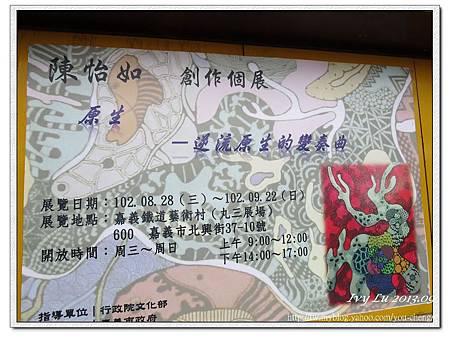 陳怡如 創作個展
原生
—逆流原生的變奏曲
展覽日期：102.08.28（三）～102.09.22（日）
展覽地點：嘉義鐵道藝術村（九三展場）
600 嘉義市北興街37-10號
開放時間：周三～周日 上午 9:00～12:00
下午14:00～17:00
指導單位｜行政院文化部
Ivy Lu 2013.09